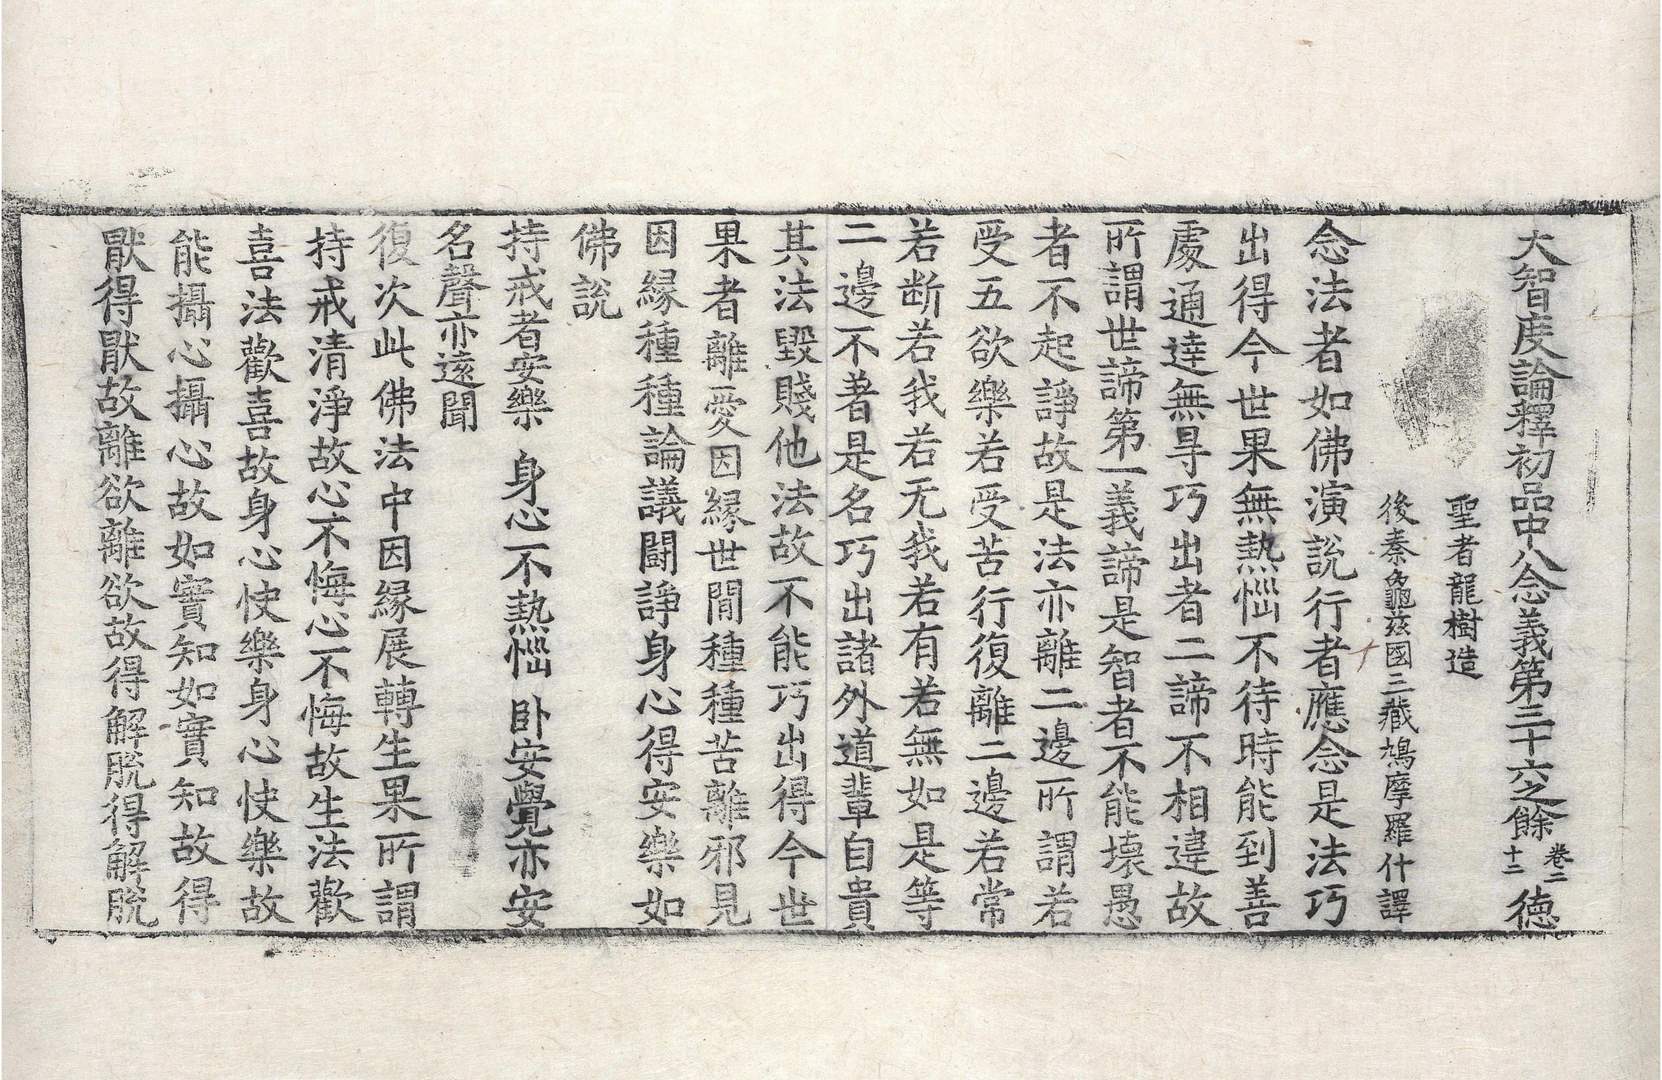 大智度論釋初品中八念義第三十六之餘 卷二十二 德
聖者龍樹造
後秦龜茲國三藏鳩摩羅什譯
念法者如佛演說行者應念是法巧
出得今世果無熱惱不待時能到善
處通達無㝵巧出者二諦不相違故
所謂世諦第一義諦是智者不能壞愚
者不起諍故是法亦離二邊所謂若
受五欲樂若受苦行復離二邊若常
若断若我若无我若有若無如是等
二邊不著是名巧出諸外道輩自貴
其法毀賤他法故不能巧出得今世
果者離愛因緣世間種種苦離邪見
因緣種種論議鬪諍身心得安樂如
佛說
持戒者安樂 身心不熱惱 卧安覺亦安
名聲亦遠聞
復次此佛法中因緣展轉生果所謂
持戒清淨故心不悔心不悔故生法歡
喜法歡喜故身心快樂身心快樂故
能攝心攝心故如實知如實知故得
猒得猒故離欲離欲故得解脫得解脫